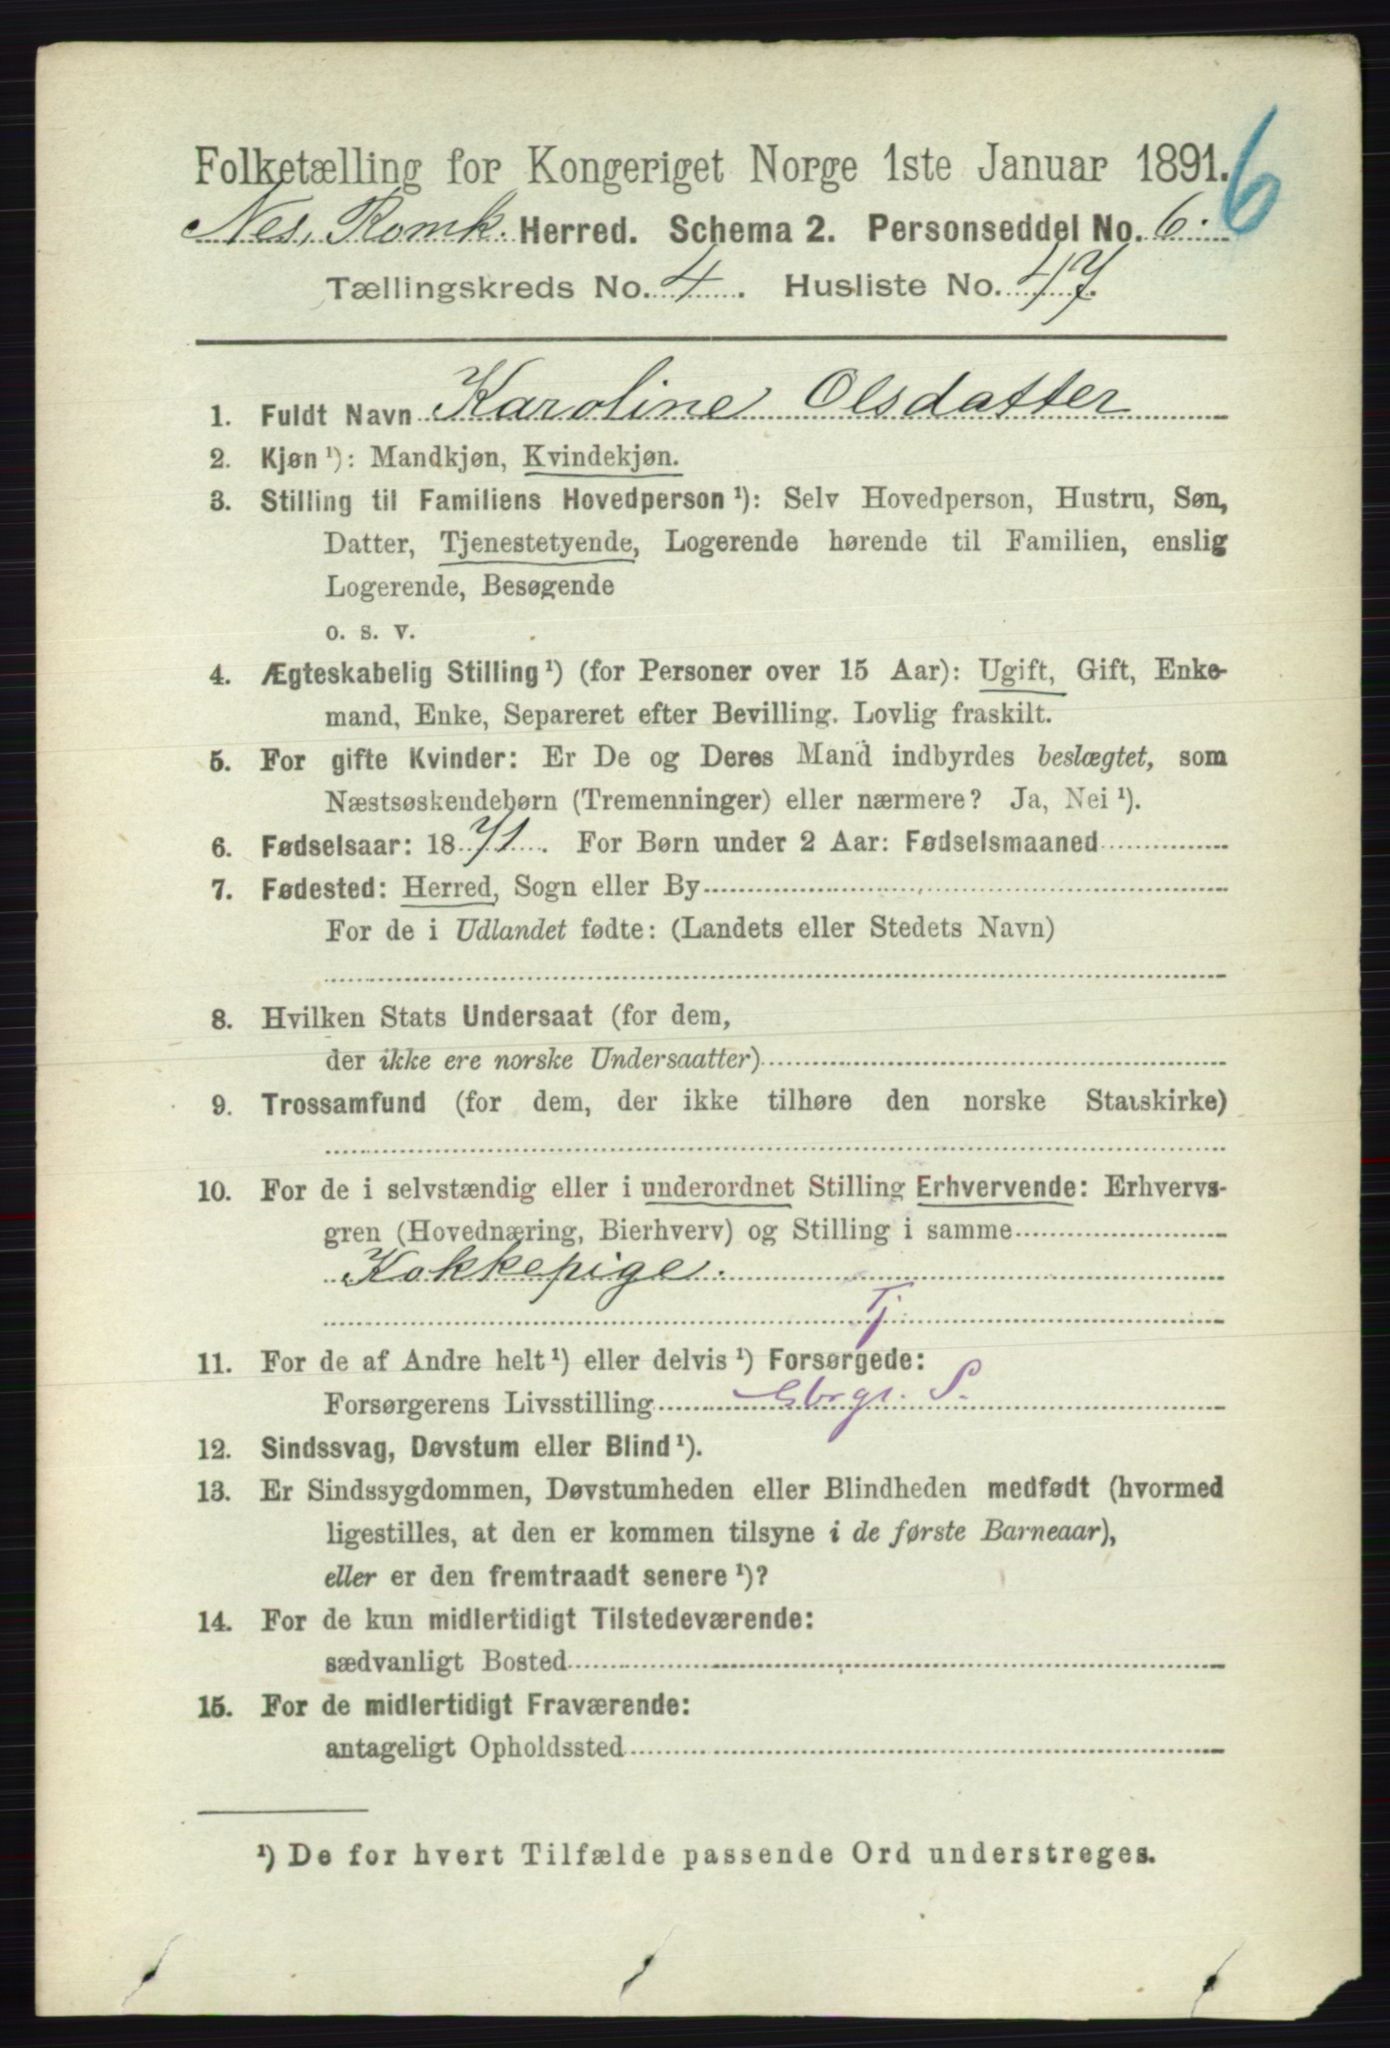 Folketælling for Kongeriget Norge 1ste Januar 1891.
6
Nes, Romk. Herred. Schema 2. Personseddel No. 6.
Tællingskreds No. 4. Husliste No. 47.
1. Fuldt Navn Karoline Olsdatter
2. Kjøn ¹): Mandkjøn, Kvindekjøn.
3. Stilling til Familiens Hovedperson ¹): Selv Hovedperson, Hustru, Søn,
Datter, Tjenestetyende, Logerende hørende til Familien, enslig
Logerende, Besøgende
o. s. v.
4. Ægteskabelig Stilling ¹) (for Personer over 15 Aar): Ugift, Gift, Enke-
mand, Enke, Separeret efter Bevilling. Lovlig fraskilt.
5. For gifte Kvinder: Er De og Deres Mand indbyrdes beslægtet, som
Næstsøskendebørn (Tremenninger) eller nærmere? Ja, Nei ¹).
6. Fødselsaar: 1871. For Børn under 2 Aar: Fødselsmaaned
7. Fødested: Herred, Sogn eller By
For de i Udlandet fødte: (Landets eller Stedets Navn)
8. Hvilken Stats Undersaat (for dem,
der ikke ere norske Undersaatter)
9. Trossamfund (for dem, der ikke tilhøre den norske Statskirke)
10. For de i selvstændig eller i underordnet Stilling Erhvervende: Erhvervs-
gren (Hovednæring, Bierhverv) og Stilling i samme
Kokkepige.
Tj
11. For de af Andre helt ¹) eller delvis ¹) Forsørgede:
Forsørgerens Livsstilling Gbrgr. S.
12. Sindssvag, Døvstum eller Blind ¹).
13. Er Sindssygdommen, Døvstumheden eller Blindheden medfødt (hvormed
ligestilles, at den er kommen tilsyne i de første Barneaar),
eller er den fremtraadt senere ¹)?
14. For de kun midlertidigt Tilstedeværende:
sædvanligt Bosted
15. For de midlertidigt Fraværende:
antageligt Opholdssted
¹) De for hvert Tilfælde passende Ord understreges.